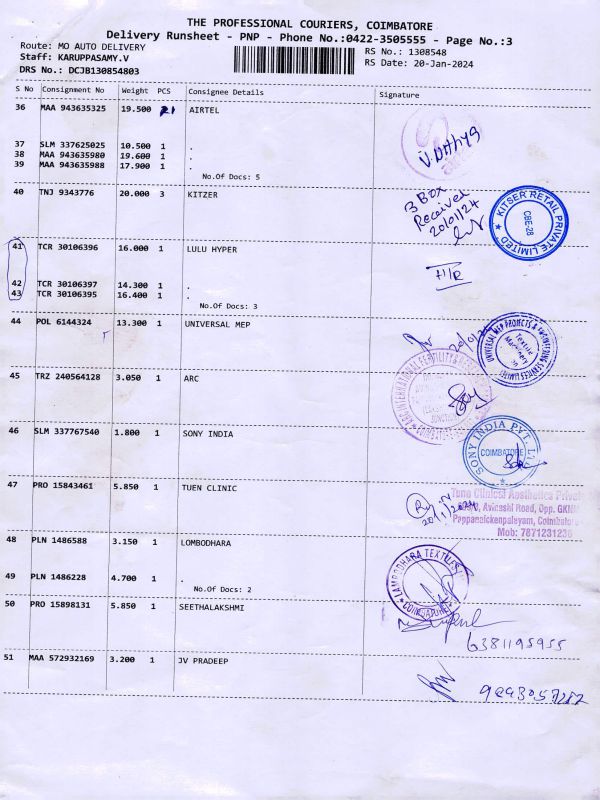 THE PROFESSIONAL COURIERS, COIMBATORE
Delivery Runsheet - PNP - Phone No.:0422-3505555 - Page No.:3
Route: MO AUTO DELIVERY
RS No.: 1308548
Staff: KARUPPASAMY.V
RS Date: 20-Jan-2024
DRS No.: DCJB130854803
S No Consignment No Weight PCS Consignee Details Signature
36 MAA 943635325 19.500 21 AIRTEL
37 SLM 337625025 10.500 1 .
38 MAA 943635980 19.600 1 .
39 MAA 943635988 17.900 1 .
No.Of Docs: 5
40 TNJ 9343776 20.000 3 KITZER
3 BOX
Received
20/01/24
KITSER RETAIL PRIVATE LIMITED
CBE-28
41 TCR 30106396 16.000 1 LULU HYPER
42 TCR 30106397 14.300 1 .
43 TCR 30106395 16.400 1 .
No.Of Docs: 3
44 POL 6144324 13.300 1 UNIVERSAL MEP
UNIVERSAL MEP PROJECTS & ENGINEERING SERVICES LIMITED
Textile
Machinery
45 TRZ 240564128 3.050 1 ARC
46 SLM 337767540 1.800 1 SONY INDIA
SONY INDIA PVT. LTD
COIMBATORE
47 PRO 15843461 5.850 1 TUEN CLINIC
Tune Clinics Aesthetics Private
Avinashi Road, Opp. GKNM
Pappanaickenpalayam, Coimbatore
Mob: 7871231236
48 PLN 1486588 3.150 1 LOMBODHARA
LAMBODHARA TEXTILES
COIMBATORE
49 PLN 1486228 4.700 1 .
No.Of Docs: 2
50 PRO 15898131 5.850 1 SEETHALAKSHMI
6381195955
51 MAA 572932169 3.200 1 JV PRADEEP